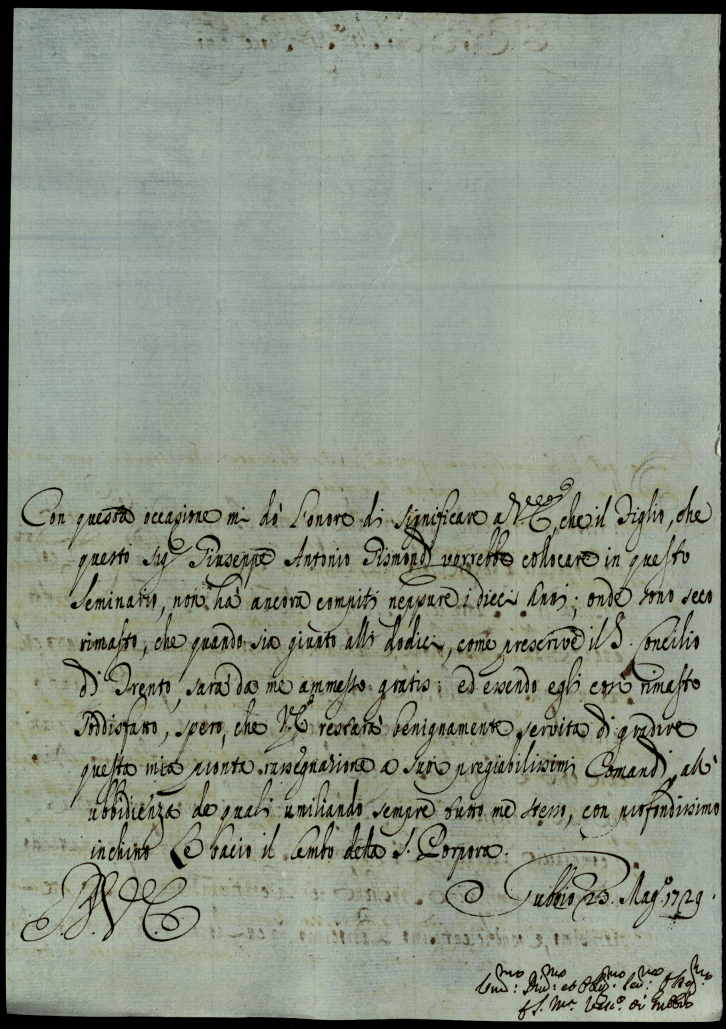 Con questa occasione mi dò l'onore di significare a V. E., che il Figlio, che
questo Sig.r Giuseppe Antonio Gismondi vorrebbe collocare in questo
Seminario, non ha ancora compiti neppure i dieci Anni; onde sono seco
rimasto, che quando sia giunto alli dodici, come prescrive il S. Concilio
di Trento, sarà da me ammesso gratis: ed essendo egli così rimasto
soddisfatto, spero, che V. E. restarà benignamente servita di gradire
questa mia pronta rassegnazione a suoi pregiabilissimi Comandi, all'
ubbidienza de quali umiliando sempre tutto me stesso, con profondissimo
inchino Le bacio il Lembo della S. Porpora.
Gubbio 23. Mag.o 1729.
D. V. E.
f. S. M.a Vesc.o di Gubbio